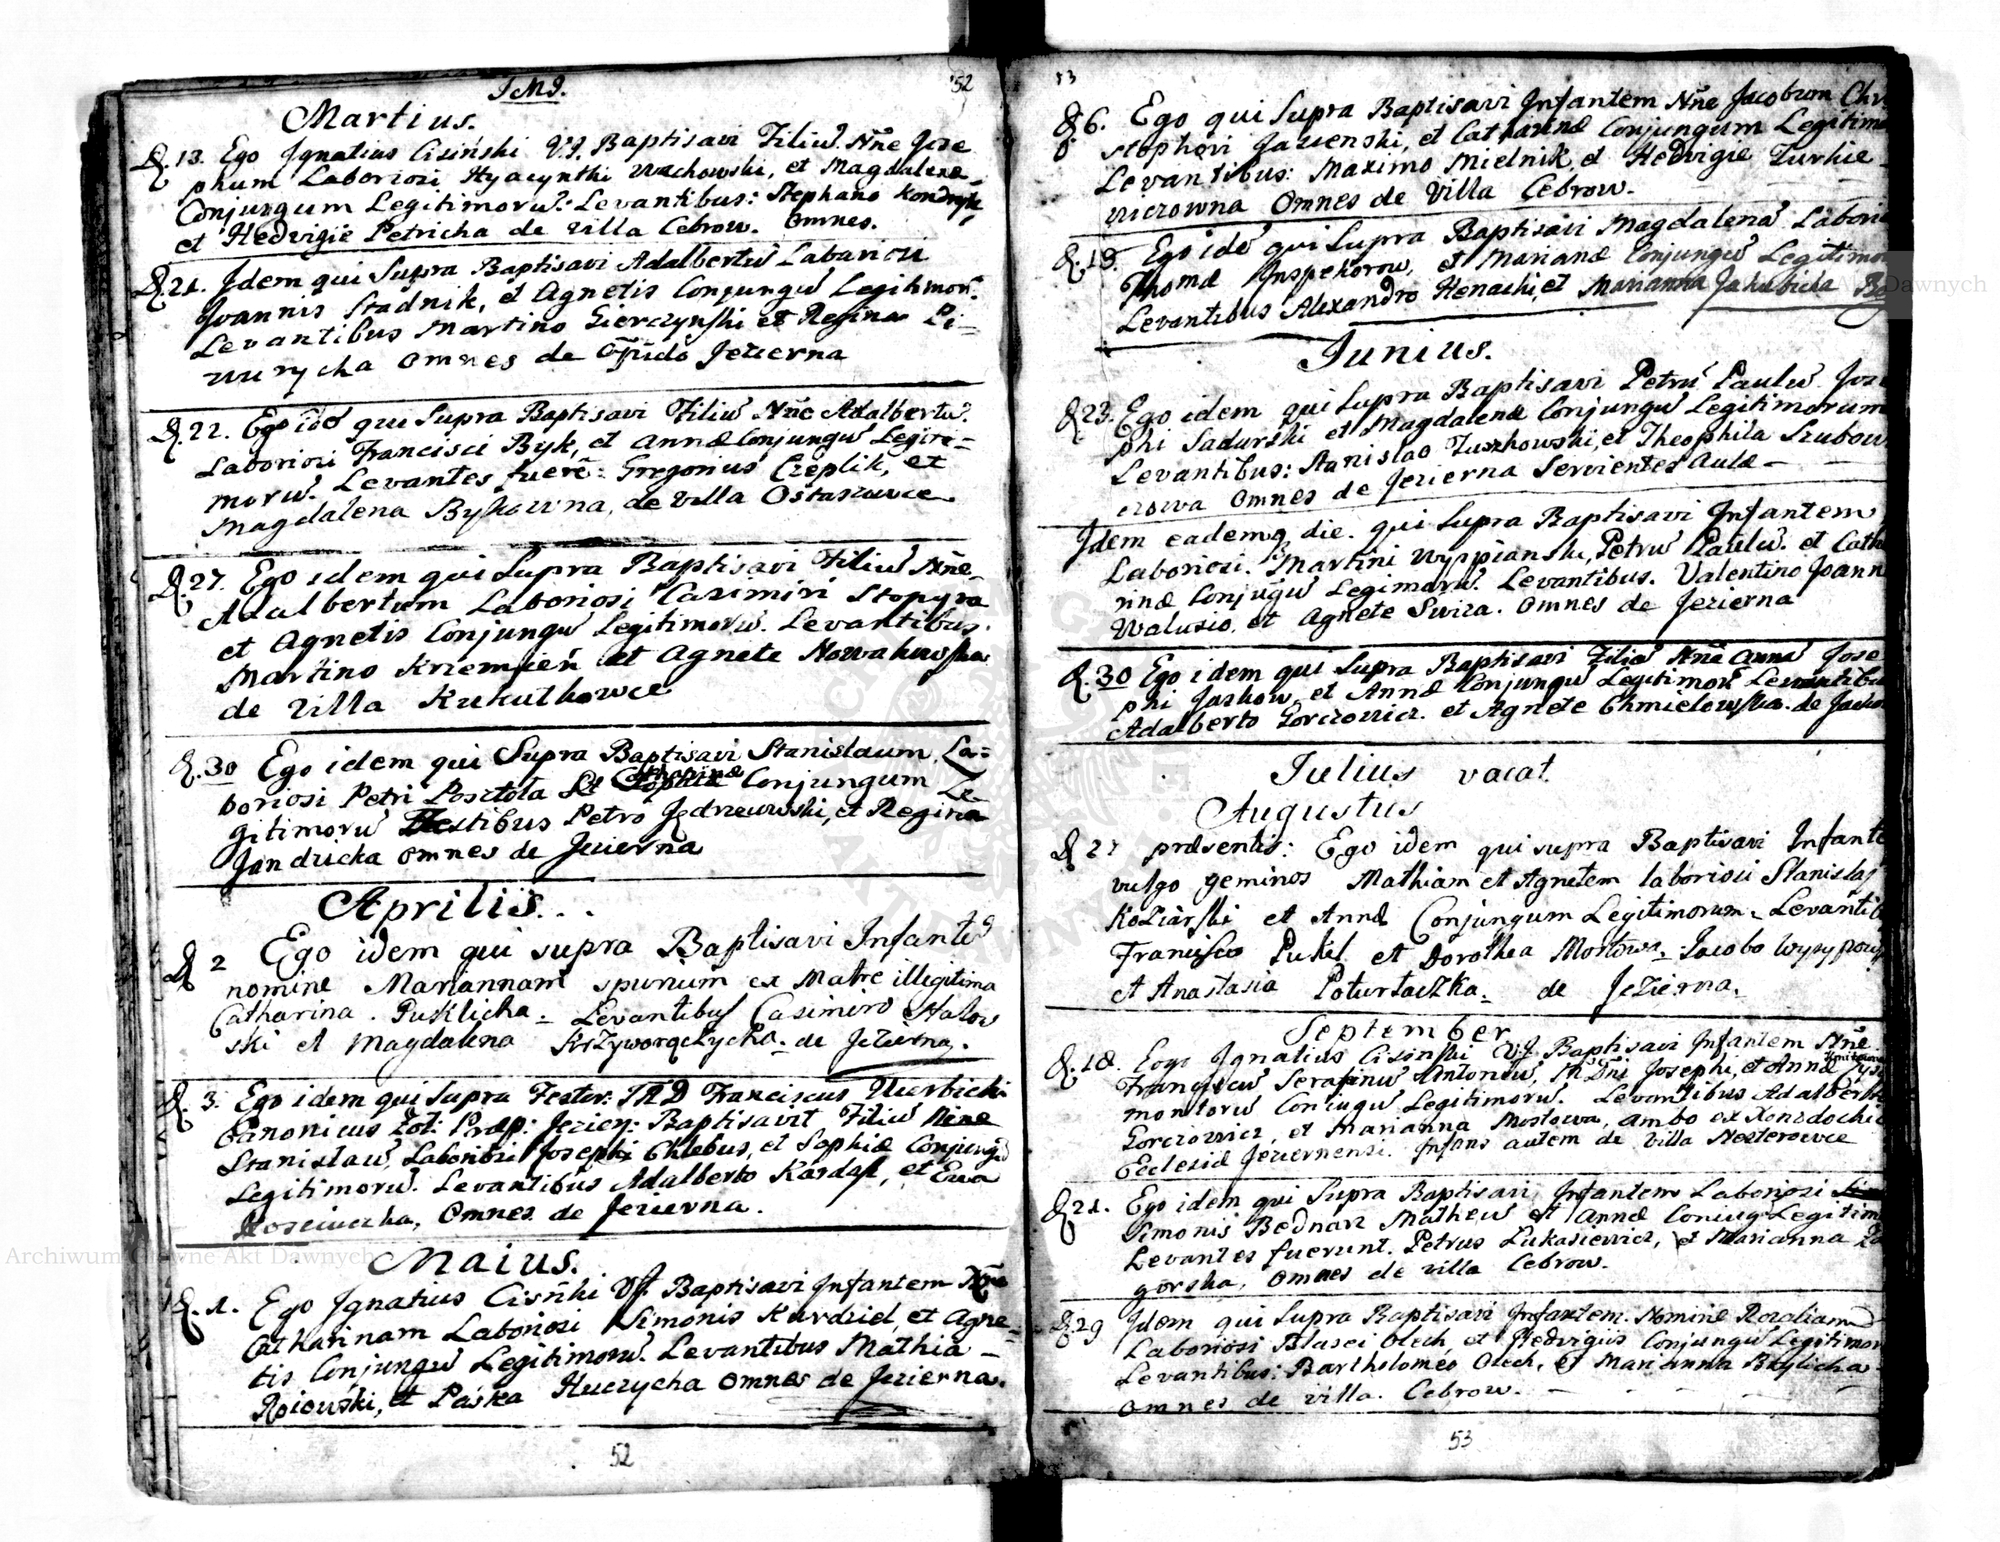 52
Martius.
D. 13. Ego Ignatius Cisiński V.J. Baptisavi Filiũ Nñe Jose
phum Laboriosi Hyacynthi Wachowski, et Magdalenæ
Conjungum Legitimorũ. Levantibus: Stephano
et Hedvigie Petricha de villa Cebrow. Omnes.
D. 21. Idem qui Supra Baptisavi Adalbertũ Laboriosi
Joannis Stadnik, et Agnetis Conjungũ Legitimorũ.
Levantibus Martino Gierczynski et Regina Li=
wurycha Omnes de Jezierna
D. 22. Ego idẽ qui Supra Baptisavi Filiũ Nñe Adalbertũ.
Laboriosi Francisci Byk, et Annæ Conjungũ Legite=
morũ. Levantes fuerẽ: Gregorius Czeplik, et
Magdalena Bykowna, de villa Ostaszowce
D. 27. Ego idem qui Supra Baptisavi Filiũ Nñe
Adalbertum Laboriosi Casimiri Stopyra
et Agnetis Conjungũ Legitimorũ. Levantibus.
Martino Krzemień et Agnete Nowakowska
de villa Kukutkowce
D. 30 Ego idem qui Supra Baptisavi Stanislaum, La=
boriosi Petri Posztola Et Catharinæ Conjungum Le=
gitimorũ Testibus Petro Jędrzeiowski, et Regina
Jandzicka omnes de Jezierna
Aprilis...
D 2 Ego idem qui supra Baptisavi Infantẽ
nomine Mariannam spurium ex Matre illegitima
Catharina. Puklicha. Levantibus Casimiro Halow
ski et Magdalena Krzyworączycha. de Jezierna.
D. 3. Ego idem qui Supra Testor: Franciscus
Canonicus Zol: Præp: Jezier: Baptisavit Filiũ Nñne
Stanislaũ, Laboriosi Josephi Chlebus, et Sophiæ Conjungũ
Legitimorũ. Levantibus Adalberto Kardasz, et Eua
Kosciuczka, Omnes de Jezierna.
Maius.
D. 1. Ego Ignatius Cisiński VJ Baptisavi Infantem Nñe
Catharinam Laboriosi Simonis Kardziel, et Agne=
tis Conjungũ Legitimorũ. Levantibus Mathia
Roiowski, et Paska Huczycha Omnes de Jezierna.
52
53
D 6. Ego qui Supra Baptisavi Infantem Nñe Jacobum Chri
stophori Jazienski, et Catharinæ Conjungum Legitimo
Levantibus: Maximo Mielnik, et Hedvigie Turkie
wiczowna Omnes de Villa Cebrow.
D. 13. Ego idẽ qui Supra Baptisavi Magdalenã Laborio
Thomæ Inspektorow, et Marianæ Conjungũ Legitimo
Levantibus Alexandro Henachi, et Marianna Jakubicha
Junius.
D 23. Ego idem qui Supra Baptisavi Petrũ Paulũ Jose
phi Sadurski et Magdalenæ Conjungũ Legitimorum
Levantibus: Stanislao Tuszkowski, et Theophila Szubow
czowa Omnes de Jezierna Servientes Aulæ
Idem eadem die. qui Supra Baptisavi Infantem
Laboriosi. Martini Wyspianski, Petrũ Paulũ. et Catha
rinæ Conjũgũ Legimorũ. Levantibus. Valentino Joann
Walusio, et Agnete Swiza. Omnes de Jezierna
D. 30 Ego idem qui Supra Baptisavi Filiã Nñe Annã Jose
phi Jaskow, et Annæ Conjungũ Legitimorũ Levantibus
Adalberto Gorczowicz. et Agnete Chmielowska. de
Julius vacat.
Augustus
D 27 præsentis: Ego idem qui supra Baptisavi Infante
vulgo geminos Mathiam et Agnetem laboriosi Stanislaj
Koziarski et Annæ Conjungum Legitimorum. Levantib
Francisco Pukel et Dorothea Mostowa. Jacobo
et Anastasia Poturłaczka. de Jezierna.
September
D. 18. Eogo Ignatius Cisinski VJ Baptisavi Infantem Nñe
Franciscũ Serafinũ Antoniũ, M Dñi Josephi, et Annæ
montorũ Coniugũ Legitimorũ. Levantibus Adalberto
Gorczowicz, et Marianna Mostowa, ambo ex Xenodochio
Ecclesiæ Jeziernensi. Infans autem de villa Nesterowce
D. 21. Ego idem qui Supra Baptisavi Infantem Laboriosi
Simonis Bednarz Matheũ et Annæ Coniug: Legitim
Levantes fuerunt. Petrus Lukasiewicz, et Marianna Za
gorska, Omnes de villa Cebrow.
D 29 Idem qui Supra Baptisavi Infantem. Nomine Rozaliam
Laboriosi Blasei Olech, et Hedvigis Conjungũ Legitimor
Levantibus: Bartholomeo Olech, et Marianna Brylicha
Omnes de villa. Cebrow.
53
Archiwum Główne Akt Dawnych